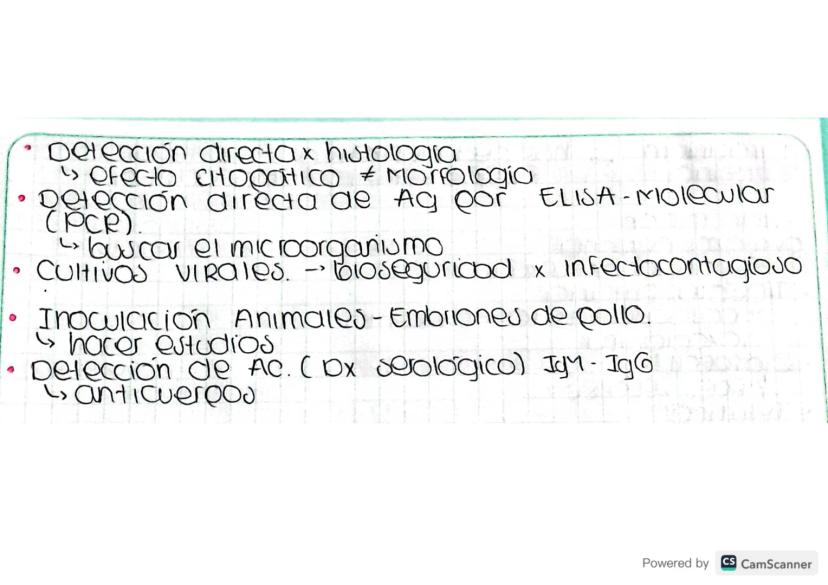 • Detección directa x histología
↳ efecto citopático ≠ Morfología
• Detección directa de Ag por ELISA - Molecular
(PCR).
↳ buscar el microorganismo
• Cultivos virales. → bioseguridad x infectocontagioso
• Inoculación Animales - Embriones de pollo.
↳ hacer estudios
• Detección de Ac. (Dx serológico) IgM - IgG
↳ anticuerpos
Powered by CS CamScanner